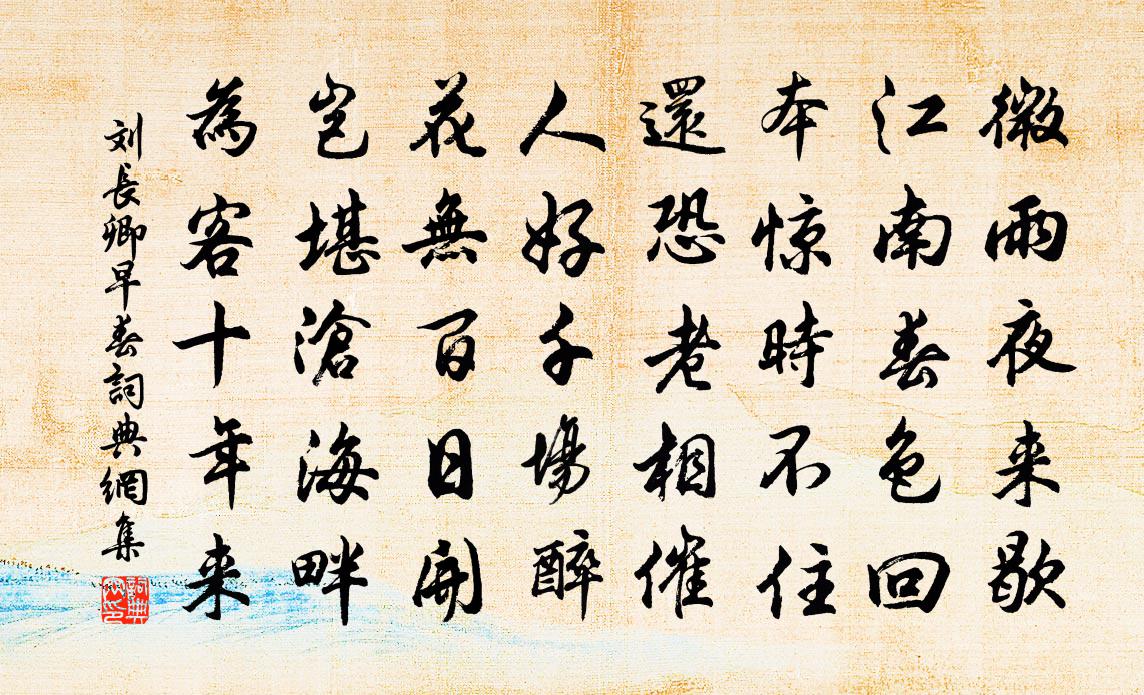 微雨夜来歇
江南春色回
本惊時不住
還恐老相催
人好千場醉
花無百日開
豈堪滄海畔
為客十年来
刘長卿早春詞典網集